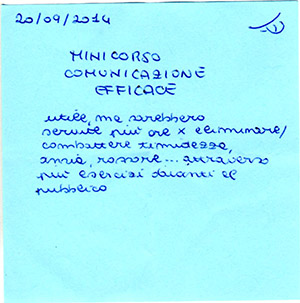 20/09/2014
MINICORSO
COMUNICAZIONE
EFFICACE
utile, ma sarebbero
servite più ore x eliminare/
combattere timidezza,
ansia, rossore... attraverso
più esercizi davanti al
pubblico